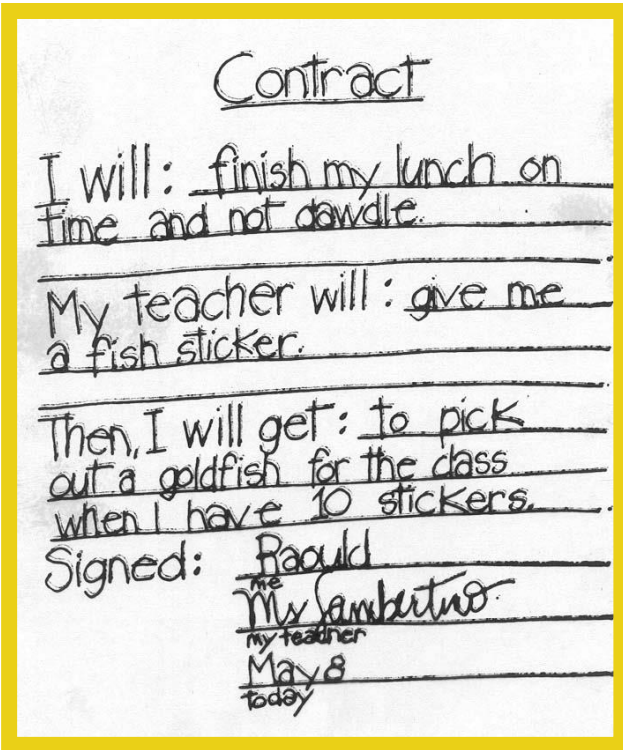 Contract
I will: finish my lunch on
time and not dawdle.
My teacher will: give me
a fish sticker.
Then, I will get: to pick
out a goldfish for the class
when I have 10 stickers.
Signed: Raould
me
my teacher
May 8
today